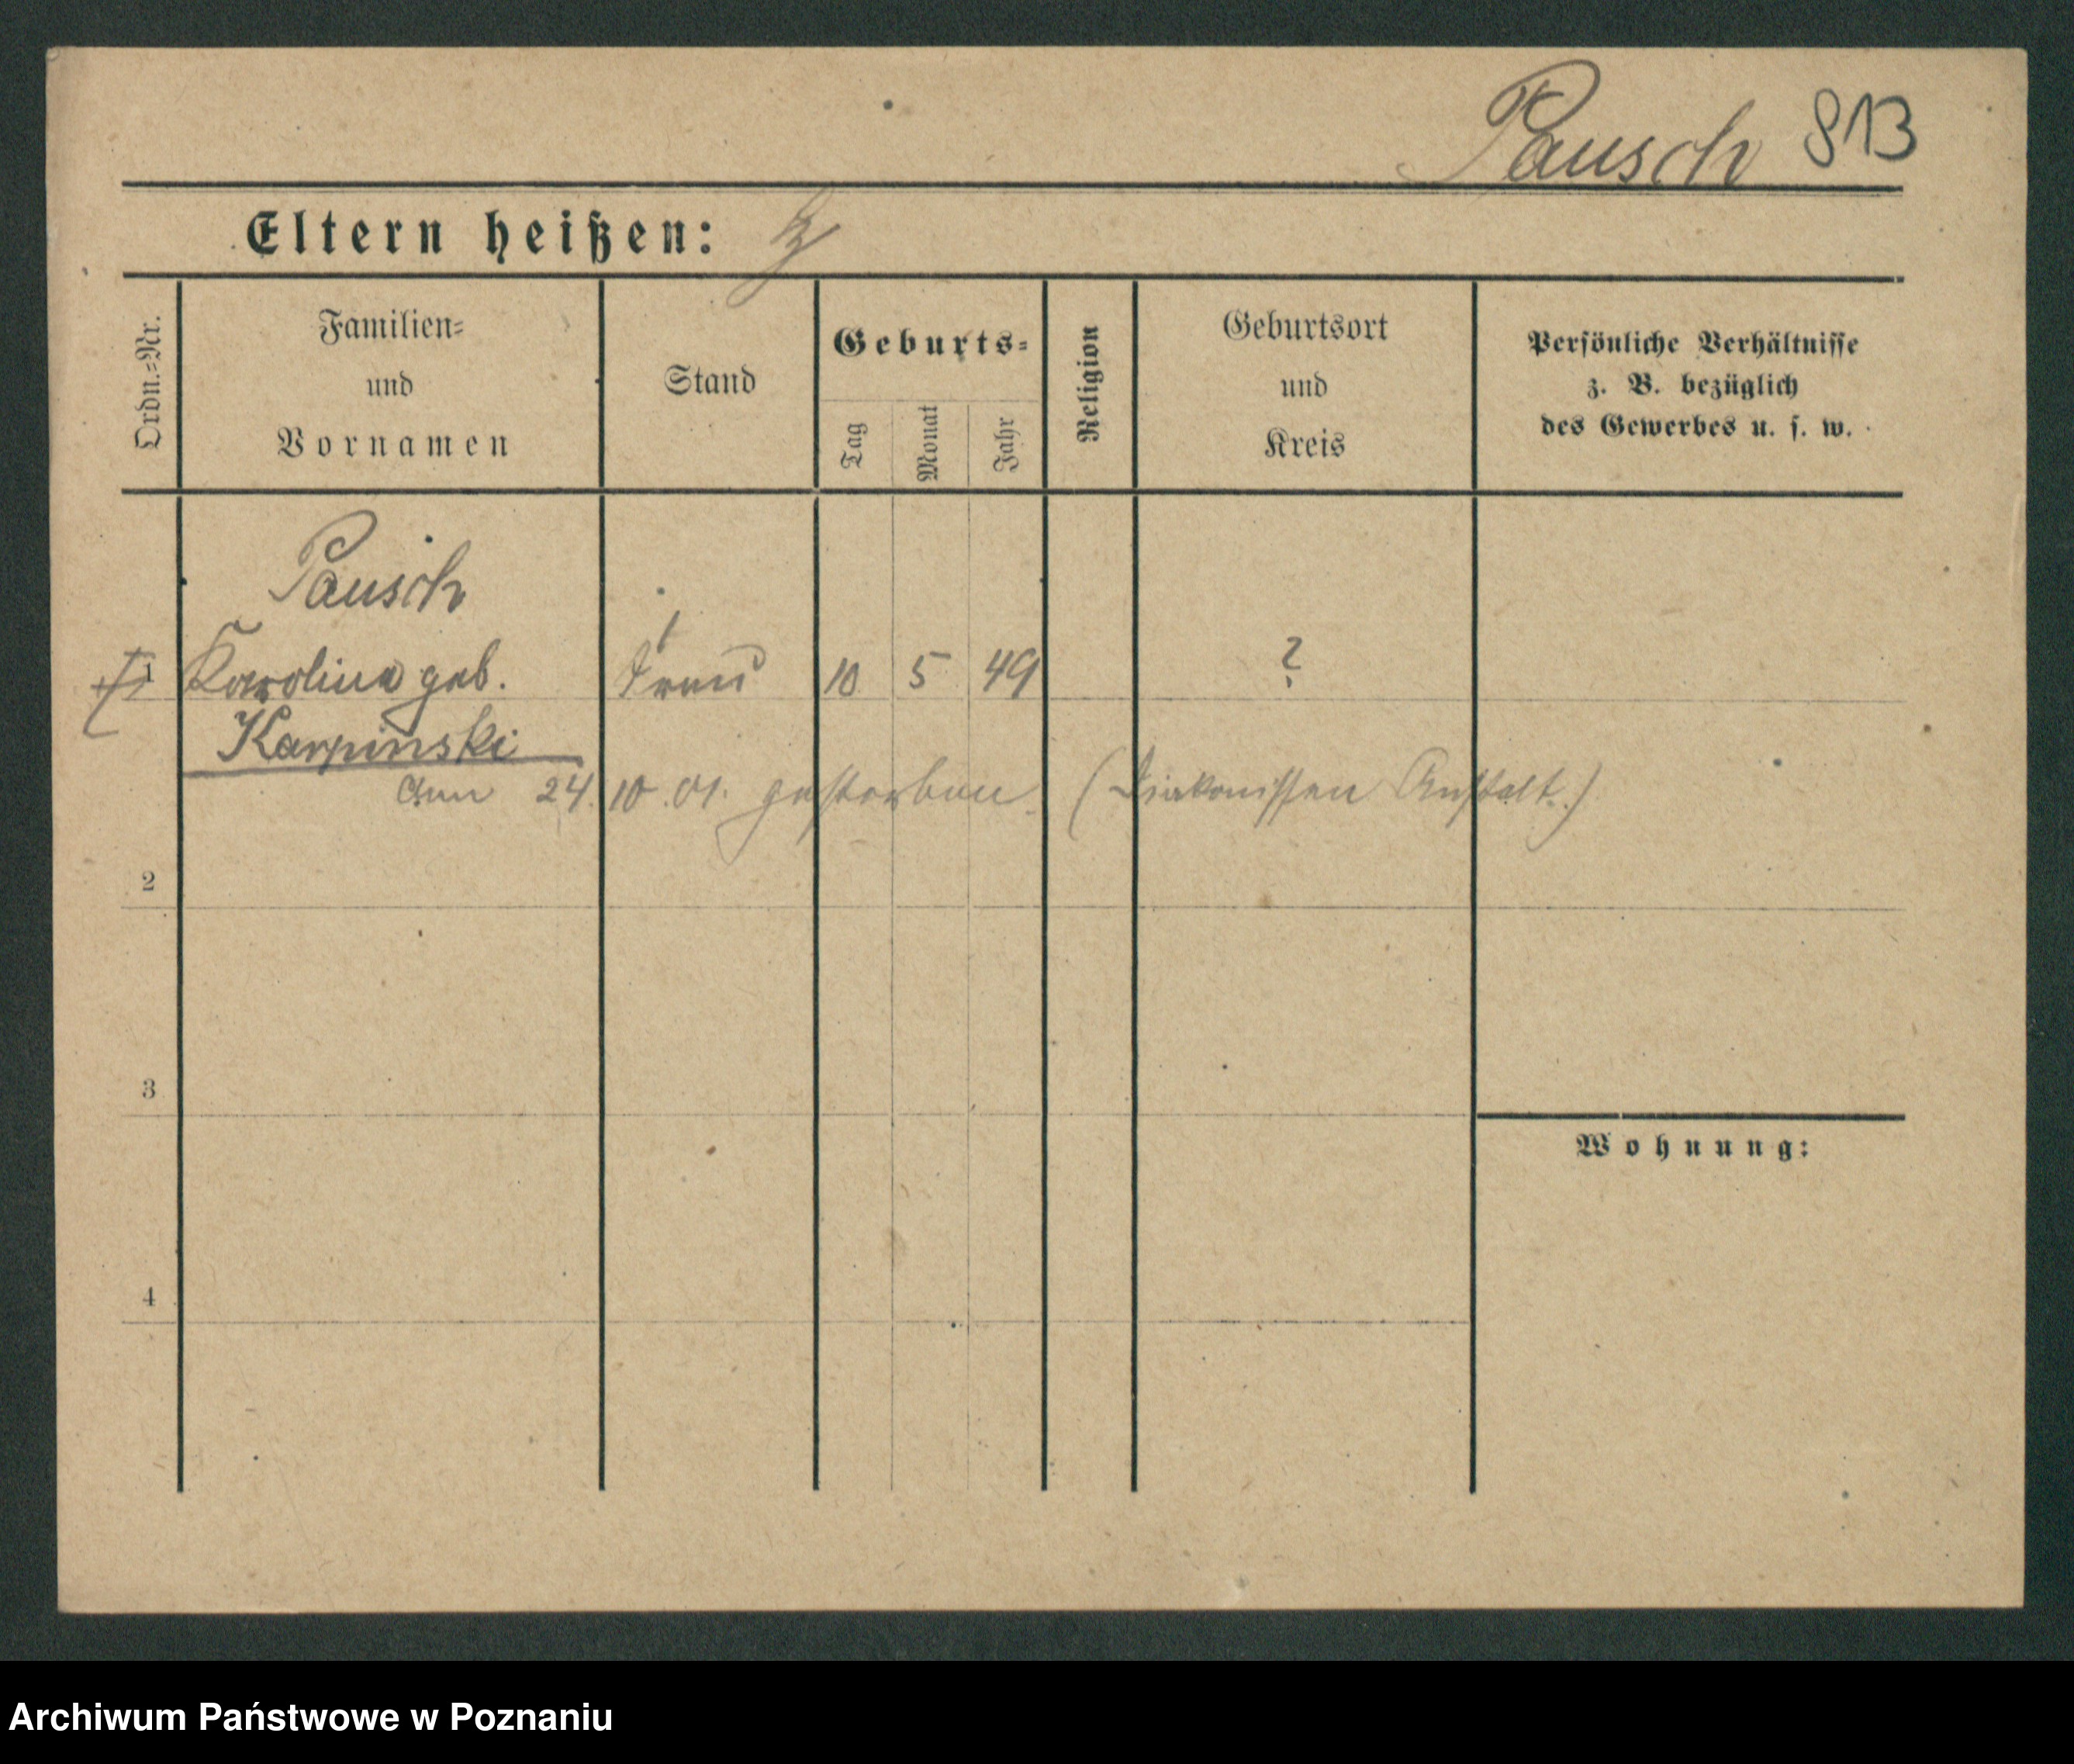 Pausch 813
Eltern heißen:
Ordn.=Nr.
Familien=
und
Vornamen
Stand
Geburts=
Tag
Monat
Jahr
Religion
Geburtsort
und
Kreis
Persönliche Verhältnisse
z. B. bezüglich
des Gewerbes u. s. w.
Pausch
1 Karoline geb. Frau 10 5 49 ?
Karpinski
am 24. 10. 01. gestorben (Diakonissen Anstalt.)
2
3
Wohnung:
4
Archiwum Państwowe w Poznaniu